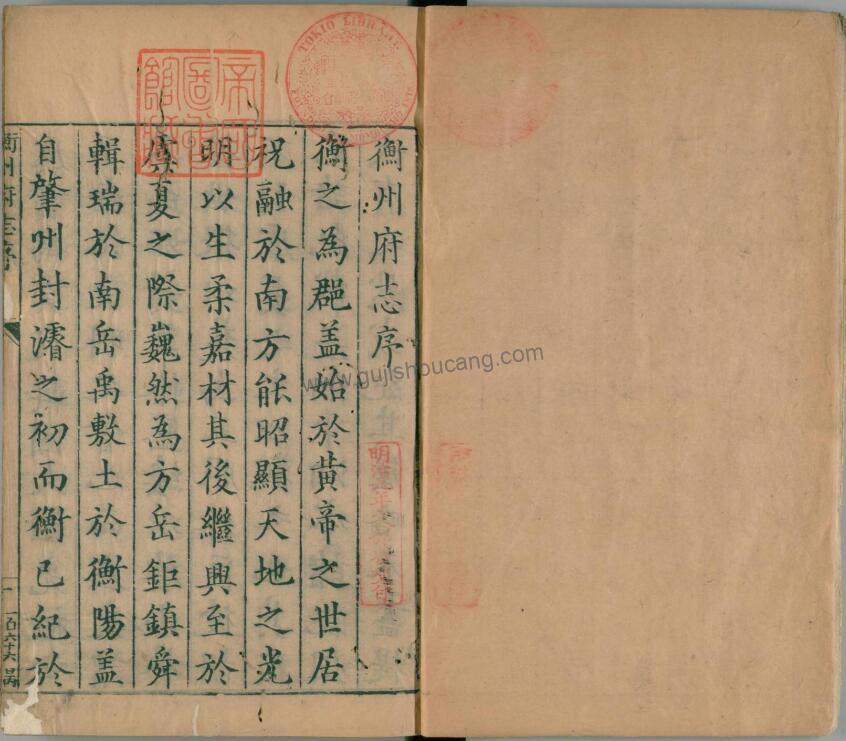 衡州府志序
衡之為郡盖始於黄帝之世居
祝融於南方能昭顯天地之光
明以生柔嘉材其後繼興至於
虞夏之際巍然為方岳鉅鎮舜
輯瑞於南岳禹敷土於衡陽盖
自肇州封濬之初而衡已紀於
衡州府志序
一百六十六
TOKIO LIBRARY
帝國圖書館藏
明治年
www.gujishoucang.com